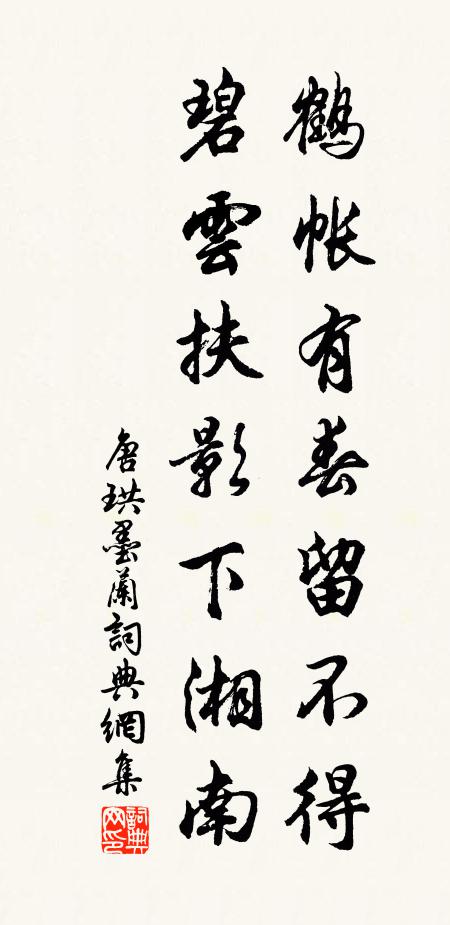 鶴帳有春留不得
碧雲扶影下湘南
唐珙墨蘭詞典網集
詞典网印